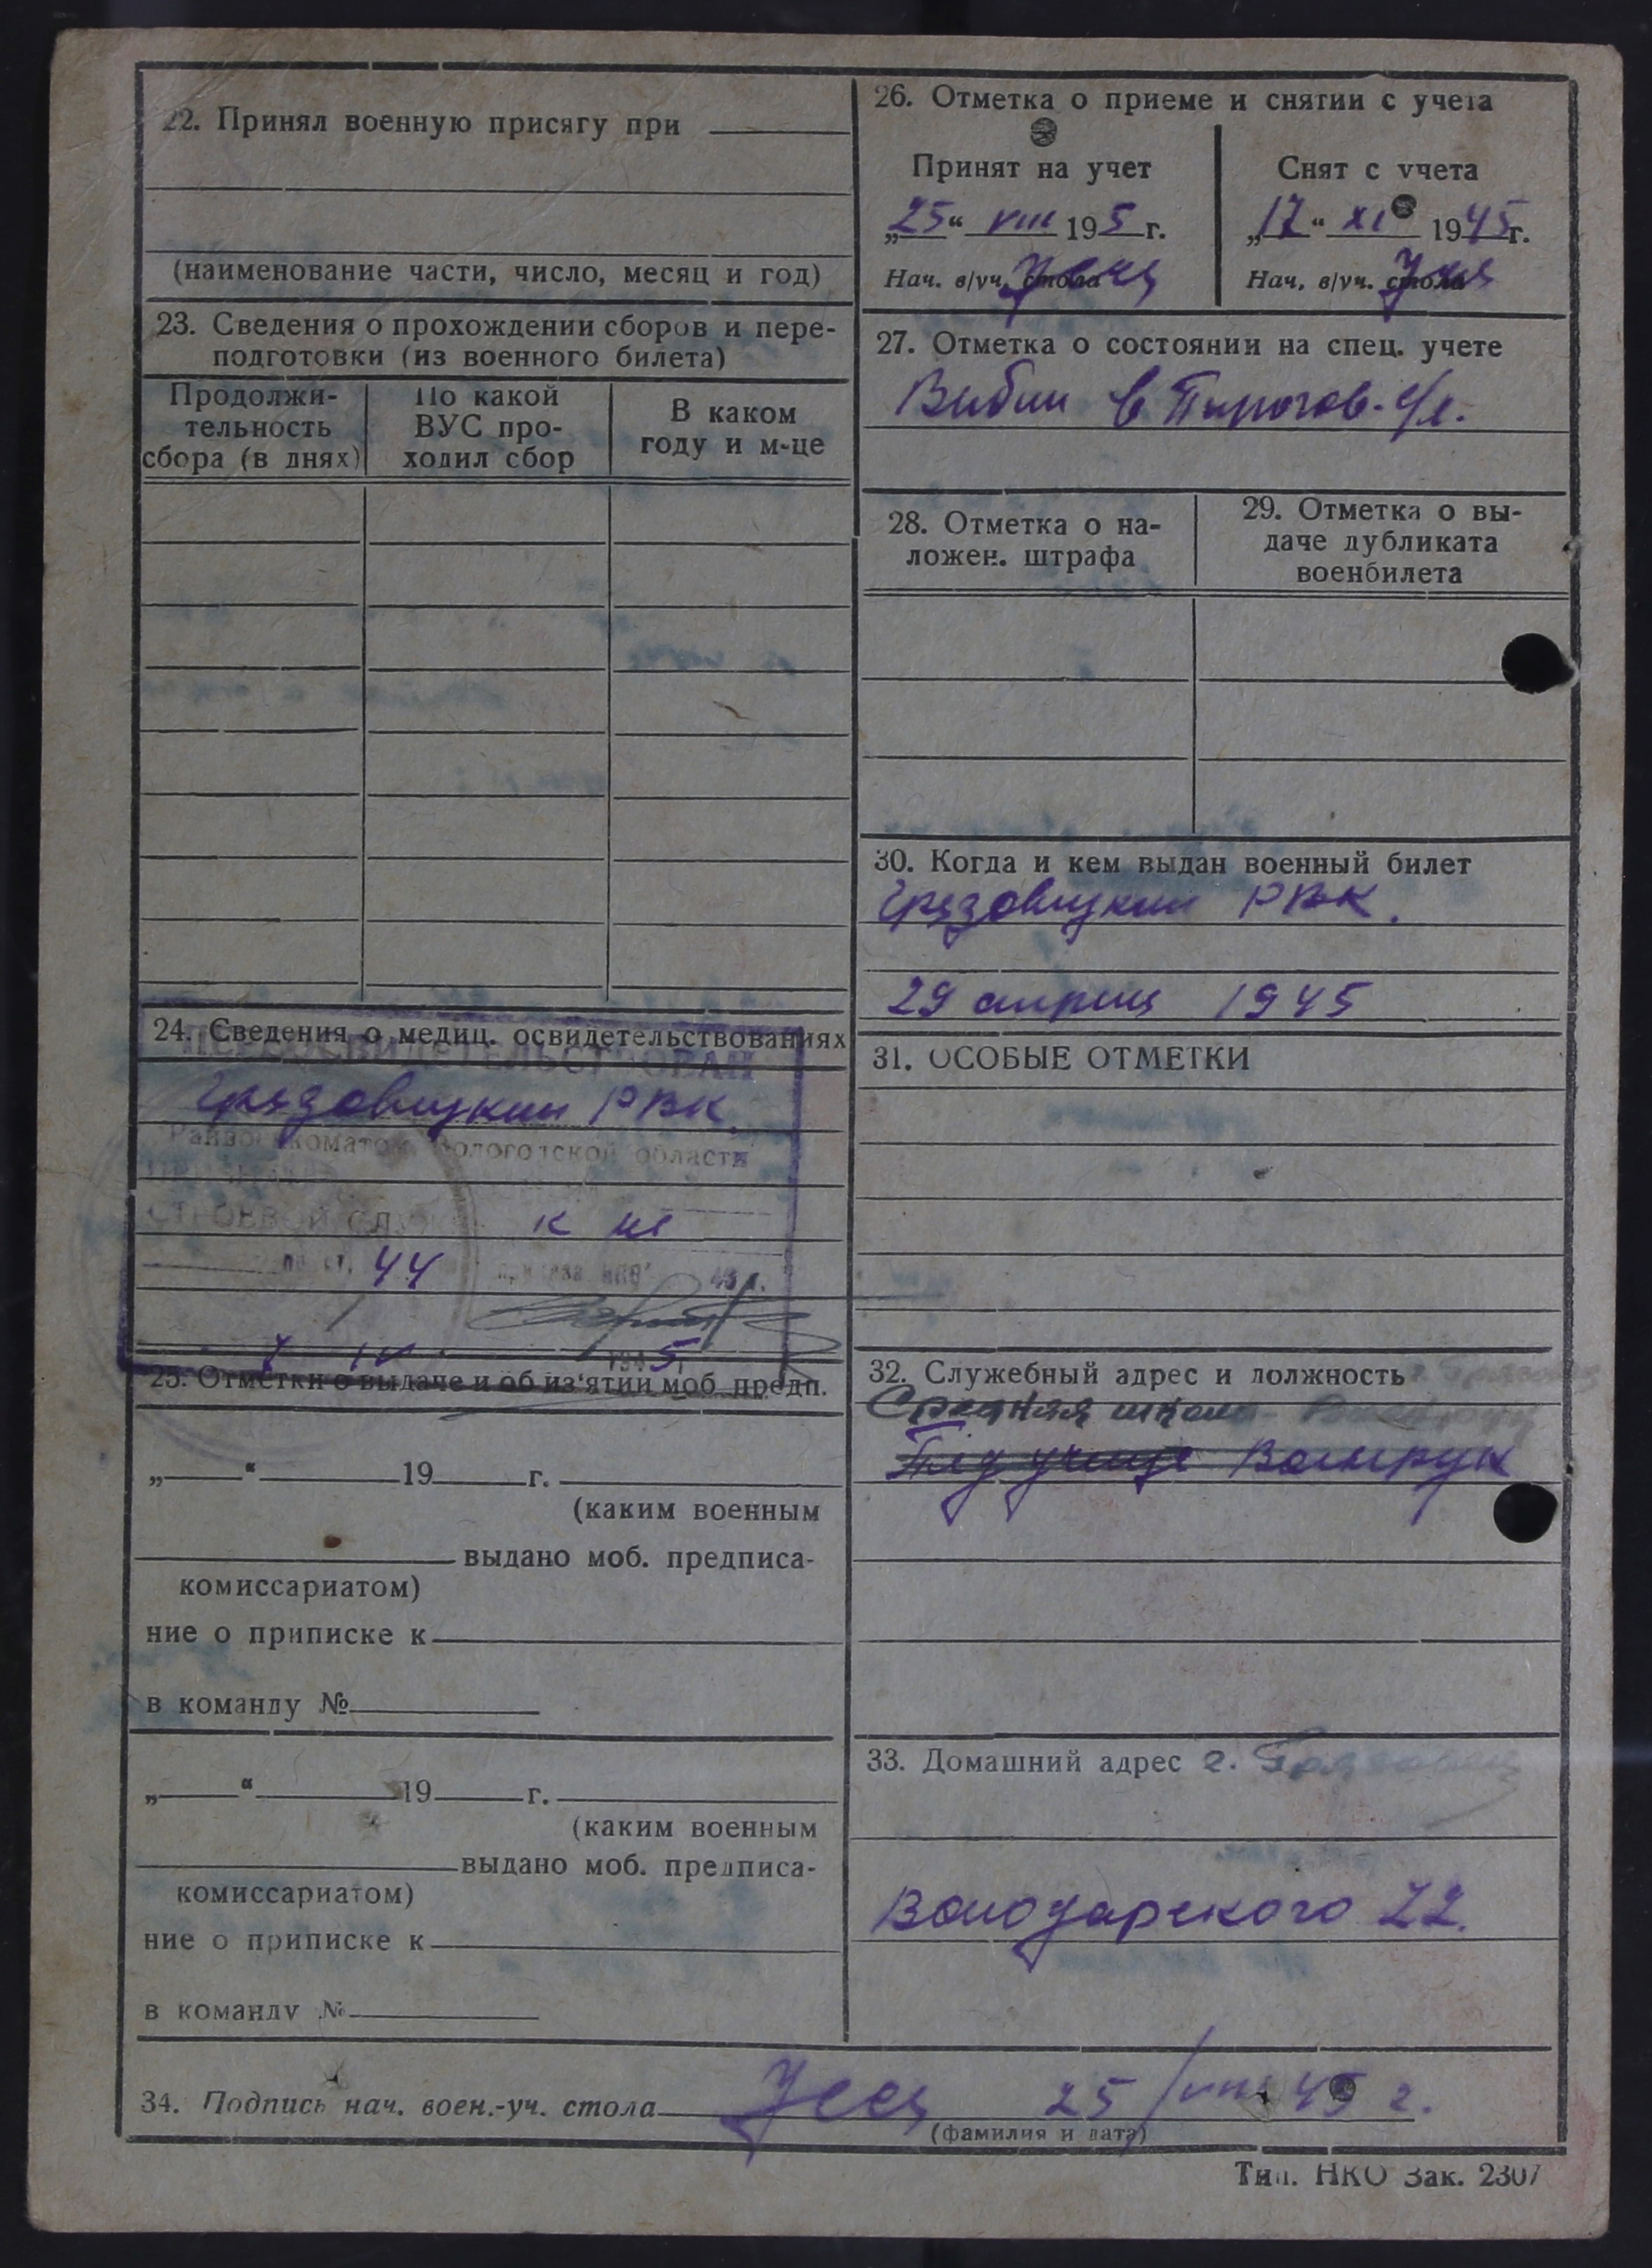 22. Принял военную присягу при
(наименование части, число, месяц и год)
23. Сведения о прохождении сборов и пере-
подготовки (из военного билета)
Продолжи-
тельность
сбора (в днях)
По какой
ВУС про-
ходил сбор
В каком
году и м-це
24. Сведения о медиц. освидетельствованиях
ПЕРЕОСВИДЕТЕЛЬСТВОВАН
Грязовецким РВК.
Райвоенкоматом Вологодской области
СТРОЕВОЙ СЛУЖ
к не
по ст. 44 приказа НКО 43 г.
IV 1945
25. Отметки о выдаче и об из'ятии моб. предп.
„ “ 19 г.
(каким военным
выдано моб. предписа-
комиссариатом)
ние о приписке к
в команду №
„ “ 19 г.
(каким военным
выдано моб. предписа-
комиссариатом)
ние о приписке к
в команду №
26. Отметка о приеме и снятии с учета
Принят на учет
„25“ VIII 195 г.
Нач. в/уч. стола
Снят с учета
„17“ XI 1945г.
Нач. в/уч. стола
27. Отметка о состоянии на спец. учете
Выбыл в с/с.
28. Отметка о на-
ложен. штрафа
29. Отметка о вы-
даче дубликата
военбилета
30. Когда и кем выдан военный билет
Грязовецким РВК.
29 апреля 1945
31. ОСОБЫЕ ОТМЕТКИ
32. Служебный адрес и должность
Средняя школа
Пед училище Военрук
33. Домашний адрес г. Грязовец
Володарского 22.
34. Подпись нач. воен.-уч. стола 25/VIII 45 г.
(фамилия и дата)
Тип. НКО Зак. 2307